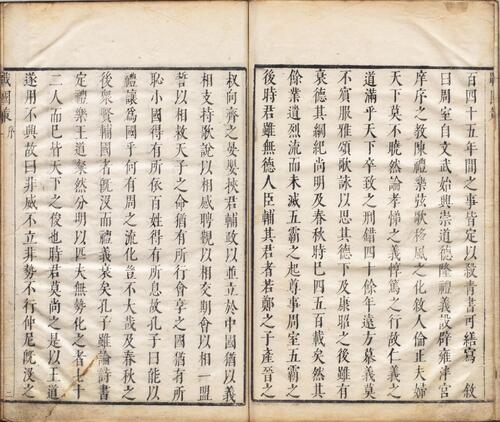 百四十五年間之事皆定以殺青書可繕寫 敘
曰周室自文武始興崇道德隆禮義設辟雍泮宮
庠序之教陳禮樂弦歌移風之化敘人倫正夫婦
天下莫不曉然論孝悌之義惇篤之行故仁義之
道滿乎天下卒致之刑錯四十餘年遠方慕義莫
不賓服雅頌歌詠以思其德下及康昭之後雖有
衰德其綱紀尚明及春秋時已四五百載矣然其
餘業遺烈流而未滅五霸之起尊事周室五霸之
後時君雖無德人臣輔其君者若鄭之子產晉之
叔向齊之晏嬰挾君輔政以並立於中國猶以義
相支持歌說以相感聘覲以相交期會以相一盟
誓以相救天子之命猶有所行會享之國猶有所
恥小國得有所依百姓得有所息故孔子曰能以
禮讓爲國乎何有周之流化豈不大哉及春秋之
後衆賢輔國者旣沒而禮義衰矣孔子雖論詩書
定禮樂王道粲然分明以匹夫無勢化之者七十
二人而已皆天下之俊也時君莫尚之是以王道
遂用不興故曰非威不立非勢不行仲尼旣沒之
戰國策 序